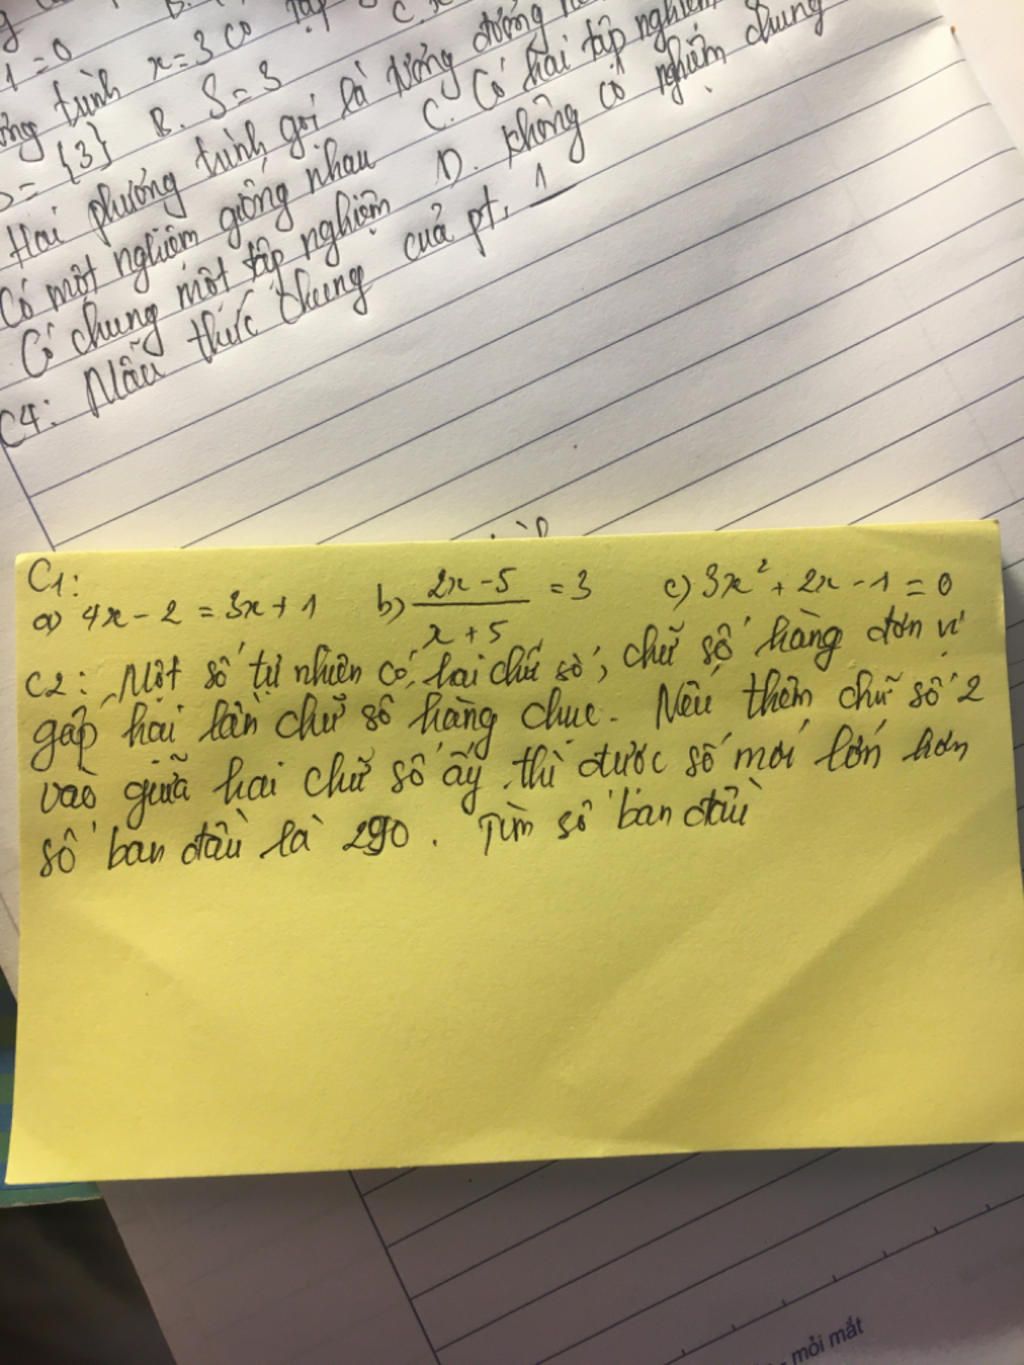 1 = 0
trình x = 3 có
= {3} B. S = 3
Hai phương trình gọi là tương đương
Có một nghiệm giống nhau C. Có hai tập nghiệm
Có chung một tập nghiệm D. Không có nghiệm chung
C4: Mẫu thức chung của pt, 1
C1:
a) 4x - 2 = 3x + 1 b) 2x - 5 / x + 5 = 3 c) 3x² + 2x - 1 = 0
C2: Một số tự nhiên có hai chữ số, chữ số hàng đơn vị
gấp hai lần chữ số hàng chục. Nếu thêm chữ số 2
vào giữa hai chữ số ấy thì được số mới lớn hơn
số ban đầu là 290. Tìm số ban đầu
mỏi mắt